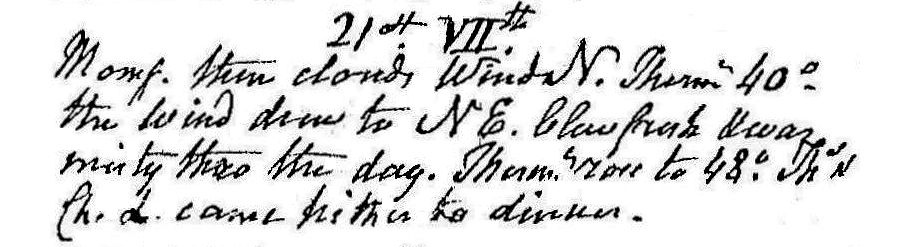 21st. VIIth.
Morng. thin clouds Wind N. Therm 40°.
the wind drew to N E. blew fresh & was
misty thro the day. Therm. rose to 48°. Th
Ch. L. came hither to dinner.